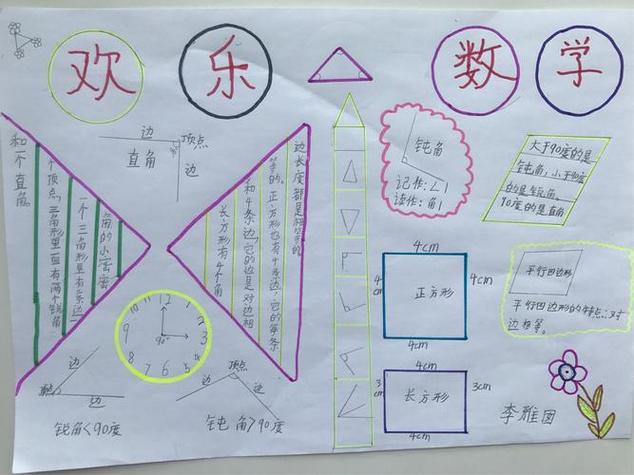 欢 乐 数 学
边
顶点
直角
边
角的小秘密
一个三角形里有三条边
个顶点,三角形里一直有两个锐角
和一个直角。
边长度都是相等的。
等的。正方形也有4条边,它的每条
和4条边,它的边是对边相
长方形有4个角
12
3
4
5
6
7
8
9
10
11
90°
边
顶点
边
锐角<90度
边
顶点
边
钝角>90度
钝角
记作:∠1
读作:角1
大于90度的是
钝角,小于90度
的是锐角。
90度的是直角
4cm
4cm
正方形
4cm
4cm
4cm
3cm
长方形
3cm
4cm
平行四边形
平行四边形的特点:对
边相等。
李雅囡